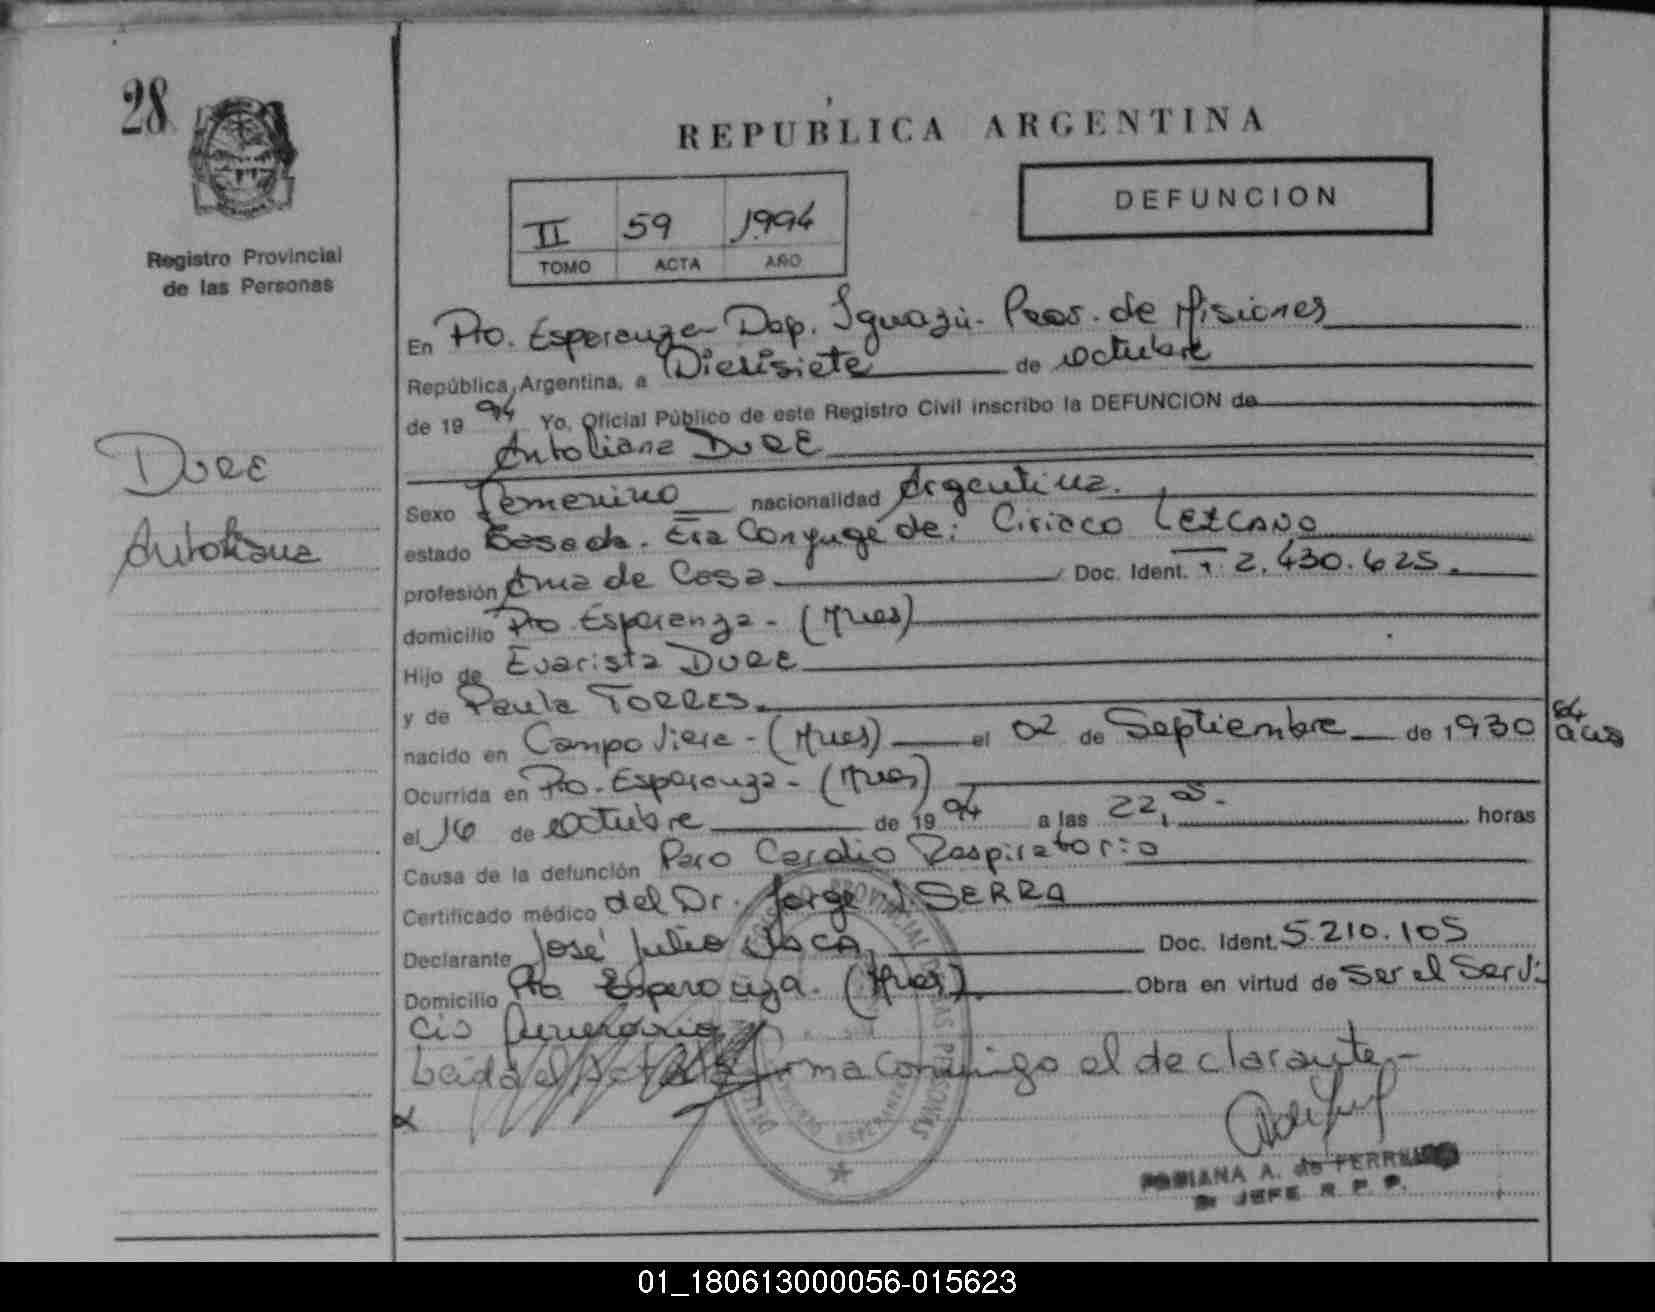 28
REPUBLICA ARGENTINA
DEFUNCION
II 59 1994
TOMO ACTA AÑO
Registro Provincial
de las Personas
En Pto. Esperanza Dep. Iguazú - Prov. de Misiones
República Argentina, a Diecisiete de octubre
de 1994 Yo, Oficial Público de este Registro Civil inscribo la DEFUNCION de
Antoliana DURE
DURE
Antoliana
Sexo Femenino nacionalidad Argentina.
estado Casada. Era Conyuge de: Ciriaco LEZCANO
profesión Ama de Casa Doc. Ident. 2.430.625.
domicilio Pto Esperanza - (Mnes)
Hijo de Evarista DURE
y de Paula TORRES.
nacido en Campo Viera - (Mnes) el 02 de Septiembre de 1930 64 años
Ocurrida en Pto. Esperanza - (Mnes)
el 16 de octubre de 1994 a las 22, horas
Causa de la defunción Paro Cardio Respiratorio
Certificado médico del Dr. Jorge J. SERRA
Declarante José Julio Doc. Ident. 5.210.105
Domicilio Pto Esperanza. (Mnes) Obra en virtud de Ser el Servi
cio funerario
Leída el Acta firma Conmigo el declarante -
FABIANA A. de
JEFE R. P. P.
01_180613000056-015623